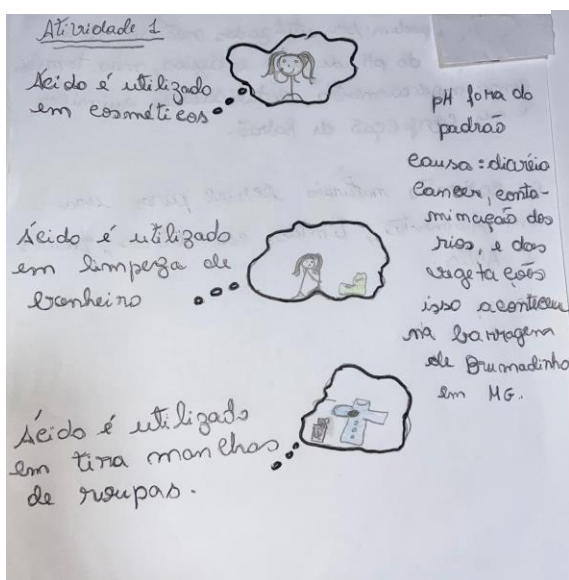 Atividade 1
Ácido é utilizado
em cosméticos
Ácido é utilizado
em limpeza de
banheiro
Ácido é utilizado
em tira manchas
de roupas.
pH fora do
padrão
causa: diaréia
cancer, conta-
minação dos
rios, e das
vegetações
isso aconteceu
na barragem
de Brumadinho
em MG.